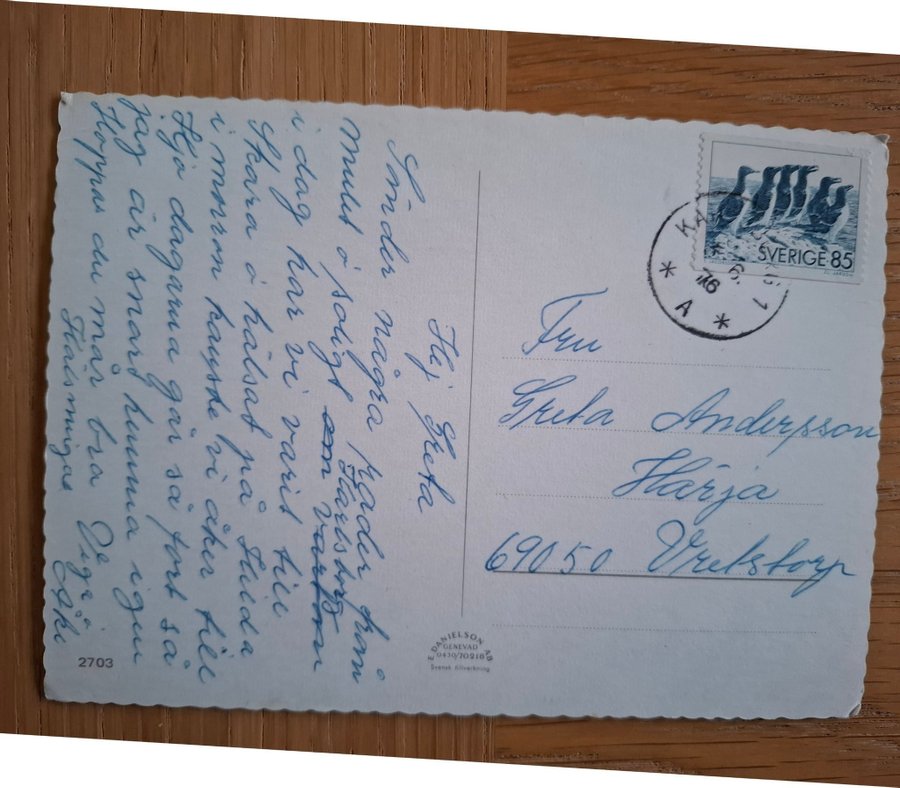 Hej Greta
Sänder några rader från
Karlsborg
mulet o soligt om vartom
i dag har vi varit till
Skara o hälsat på Hulda
i morron kanske vi åker till
Hjo dagarna går så fort så
jag är snart hemma igen
Hoppas du mår bra
Hälsningar
Åke
SVERIGE 85
K
1
6.
76
* A *
Fru
Greta Andersson
Härja
69050 Vretstorp
E. DANIELSON AB
GENEVAD
0430/70218
Svensk tillverkning
2703